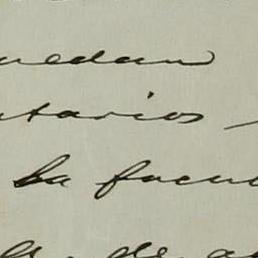 uedan
tarios
la facul
de